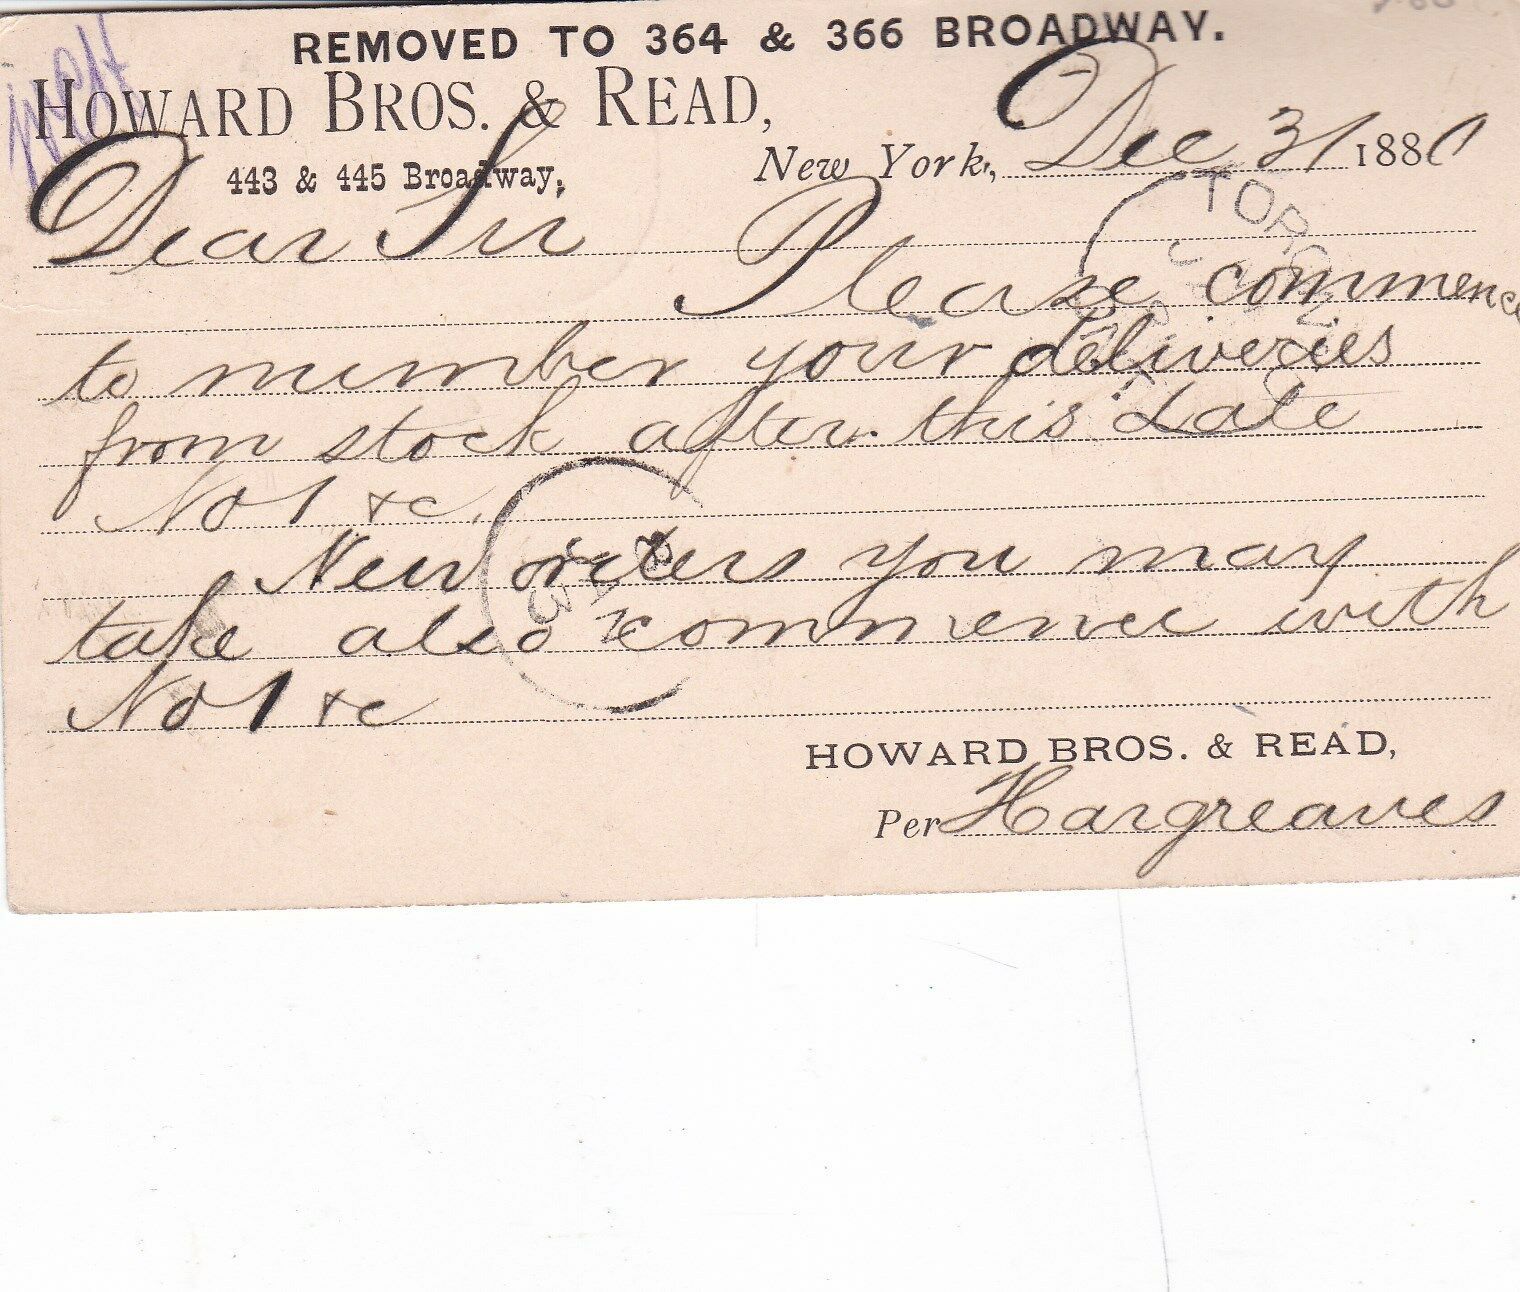 REMOVED TO 364 & 366 BROADWAY.
HOWARD BROS. & READ,
443 & 445 Broadway,
New York, Dec 31 188
Dear Sir
Please commence
to number your deliveries
from stock after this date
No 1 &c.
New orders you may
take also commence with
No 1 &c
HOWARD BROS. & READ,
Per Hargreaves